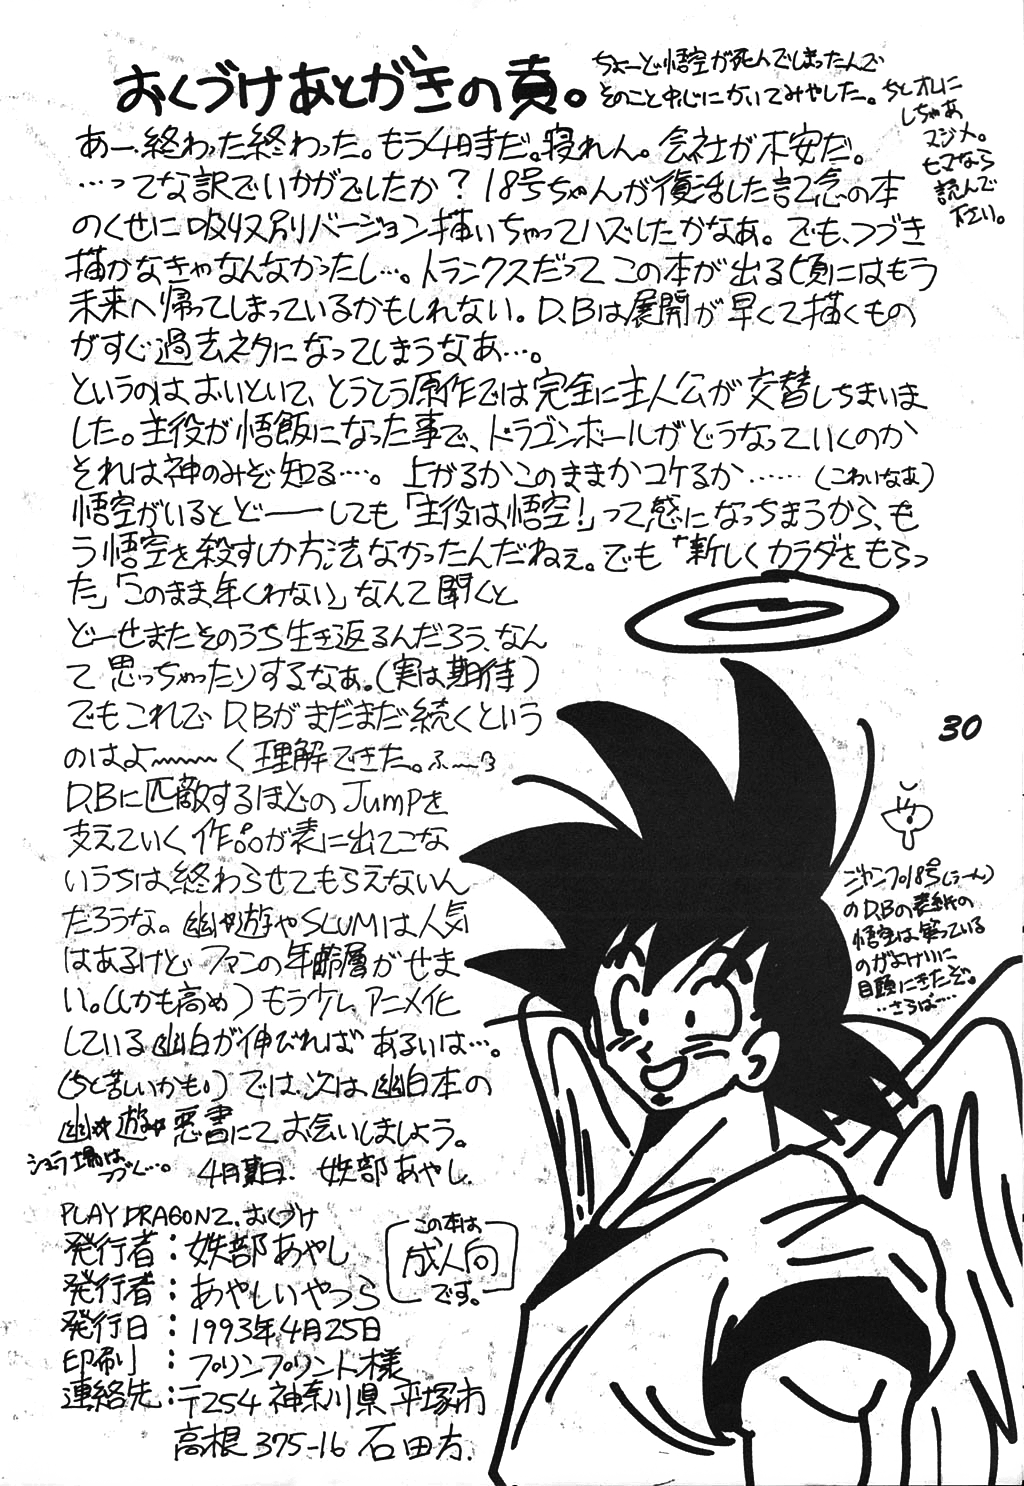 おくづけあとがきの頁。
ちょーど悟空が死んでしまったんで
そのこと中心にかいてみやした。ちとオレに
しちゃあ
マジメ。
ヒマなら
読んで
下さい。
あー、終わった終わった。もう4時だ。寝れん。会社が不安だ。
…ってな訳でいかがでしたか？18号ちゃんが復活した記念の本
のくせに吸収別バージョン描いちゃってハズしたかなあ。でも、つづき
描かなきゃなんなかったし…。トランクスだってこの本が出る頃にはもう
未来へ帰ってしまっているかもしれない。D.Bは展開が早くて描くもの
がすぐ過去ネタになってしまうなあ…。
というのはおいといて、とうとう原作では完全に主人公が交替しちまいま
した。主役が悟飯になった事で、ドラゴンボールがどうなっていくのか
それは神のみぞ知る…。上がるかこのままかコケるか……（こわいなあ）
悟空がいるとどーーしても「主役は悟空！」って感になっちまうから、も
う悟空を殺すしか方法なかったんだねぇ。でも「新しくカラダをもらっ
た」「このまま年くわない」なんて聞くと
どーせまたそのうち生き返るんだろう、なん
て思っちゃったりするなぁ。（実は期待）
でもこれでD.Bがまだまだ続くという
のはよ〜〜〜く理解できた。ふーう
D.Bに匹敵するほどのJUMPを
支えていく作品が表に出てこな
いうちは終わらせてもらえないん
だろうな。幽☆遊やSLUMは人気
はあるけどファンの年齢層がせま
い。（しかも高め）もうケレアニメ化
している幽白が伸びればあるいは…。
（ちと苦しいかも。）では、次は幽白本の
幽☆遊☆悪書にてお会いしましょう。
シュラ場は
つづく…。
4月某日、妖部あやし
30
ジャンプ18号(うーん)
のD.Bの表紙の
悟空は笑っている
のがよけいに
目頭にきたぞ。
…さらば…
PLAY DRAGON2.おくづけ
発行者：妖部あやし
発行者：あやしいやつら
発行日：1993年4月25日
印刷：プリンプリント様
連絡先：〒254 神奈川県平塚市
高根375-16 石田方.
この本は
成人向
です。